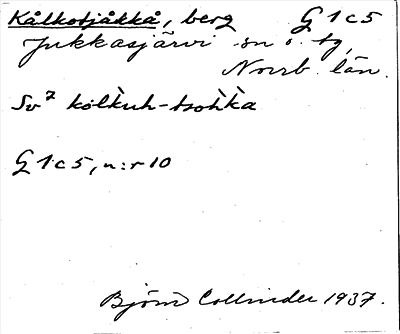 Kålkotjåkkå, berg G 1 c 5
Jukkasjärvi sn o. tg,
Norrb. län.
Sv⁷ kòlkuh-tsohkka
G 1 c 5, n:r 10
Björn Collinder 1937.